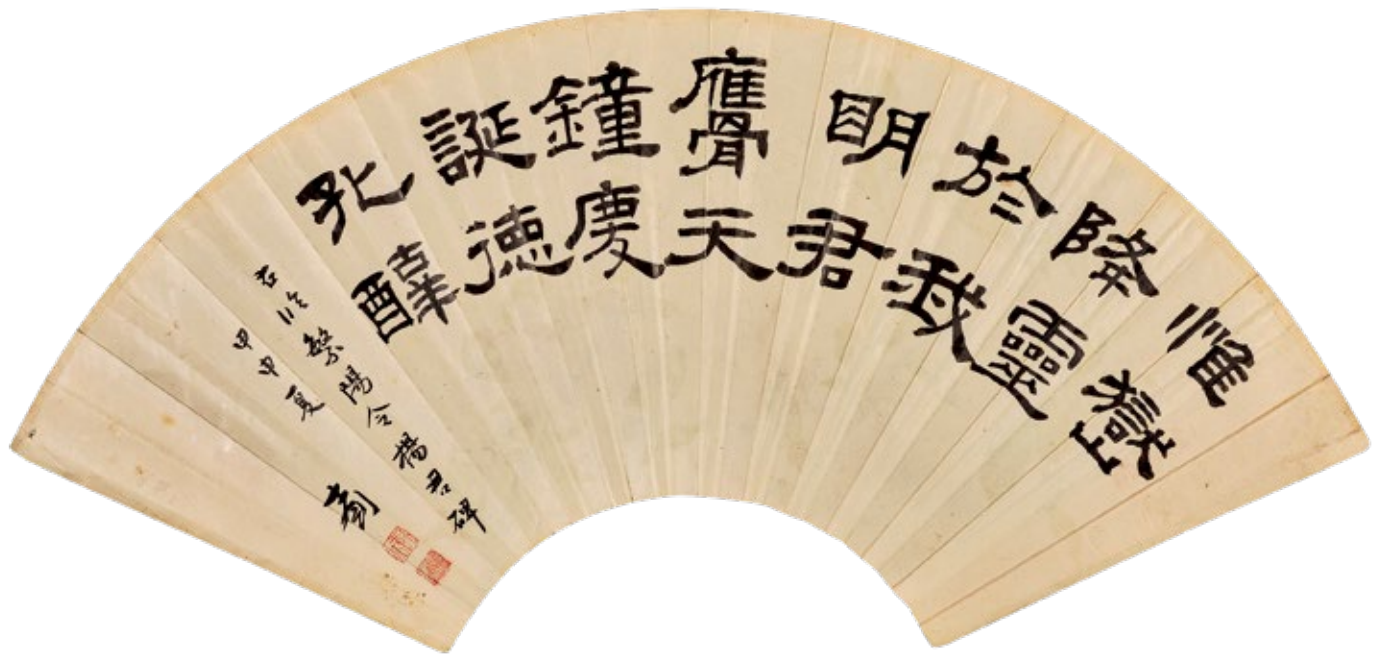 惟嶽
降靈
於我
眀君
膺天
鐘慶
誕德
孔醇
右臨繁陽令楊君碑
甲申夏